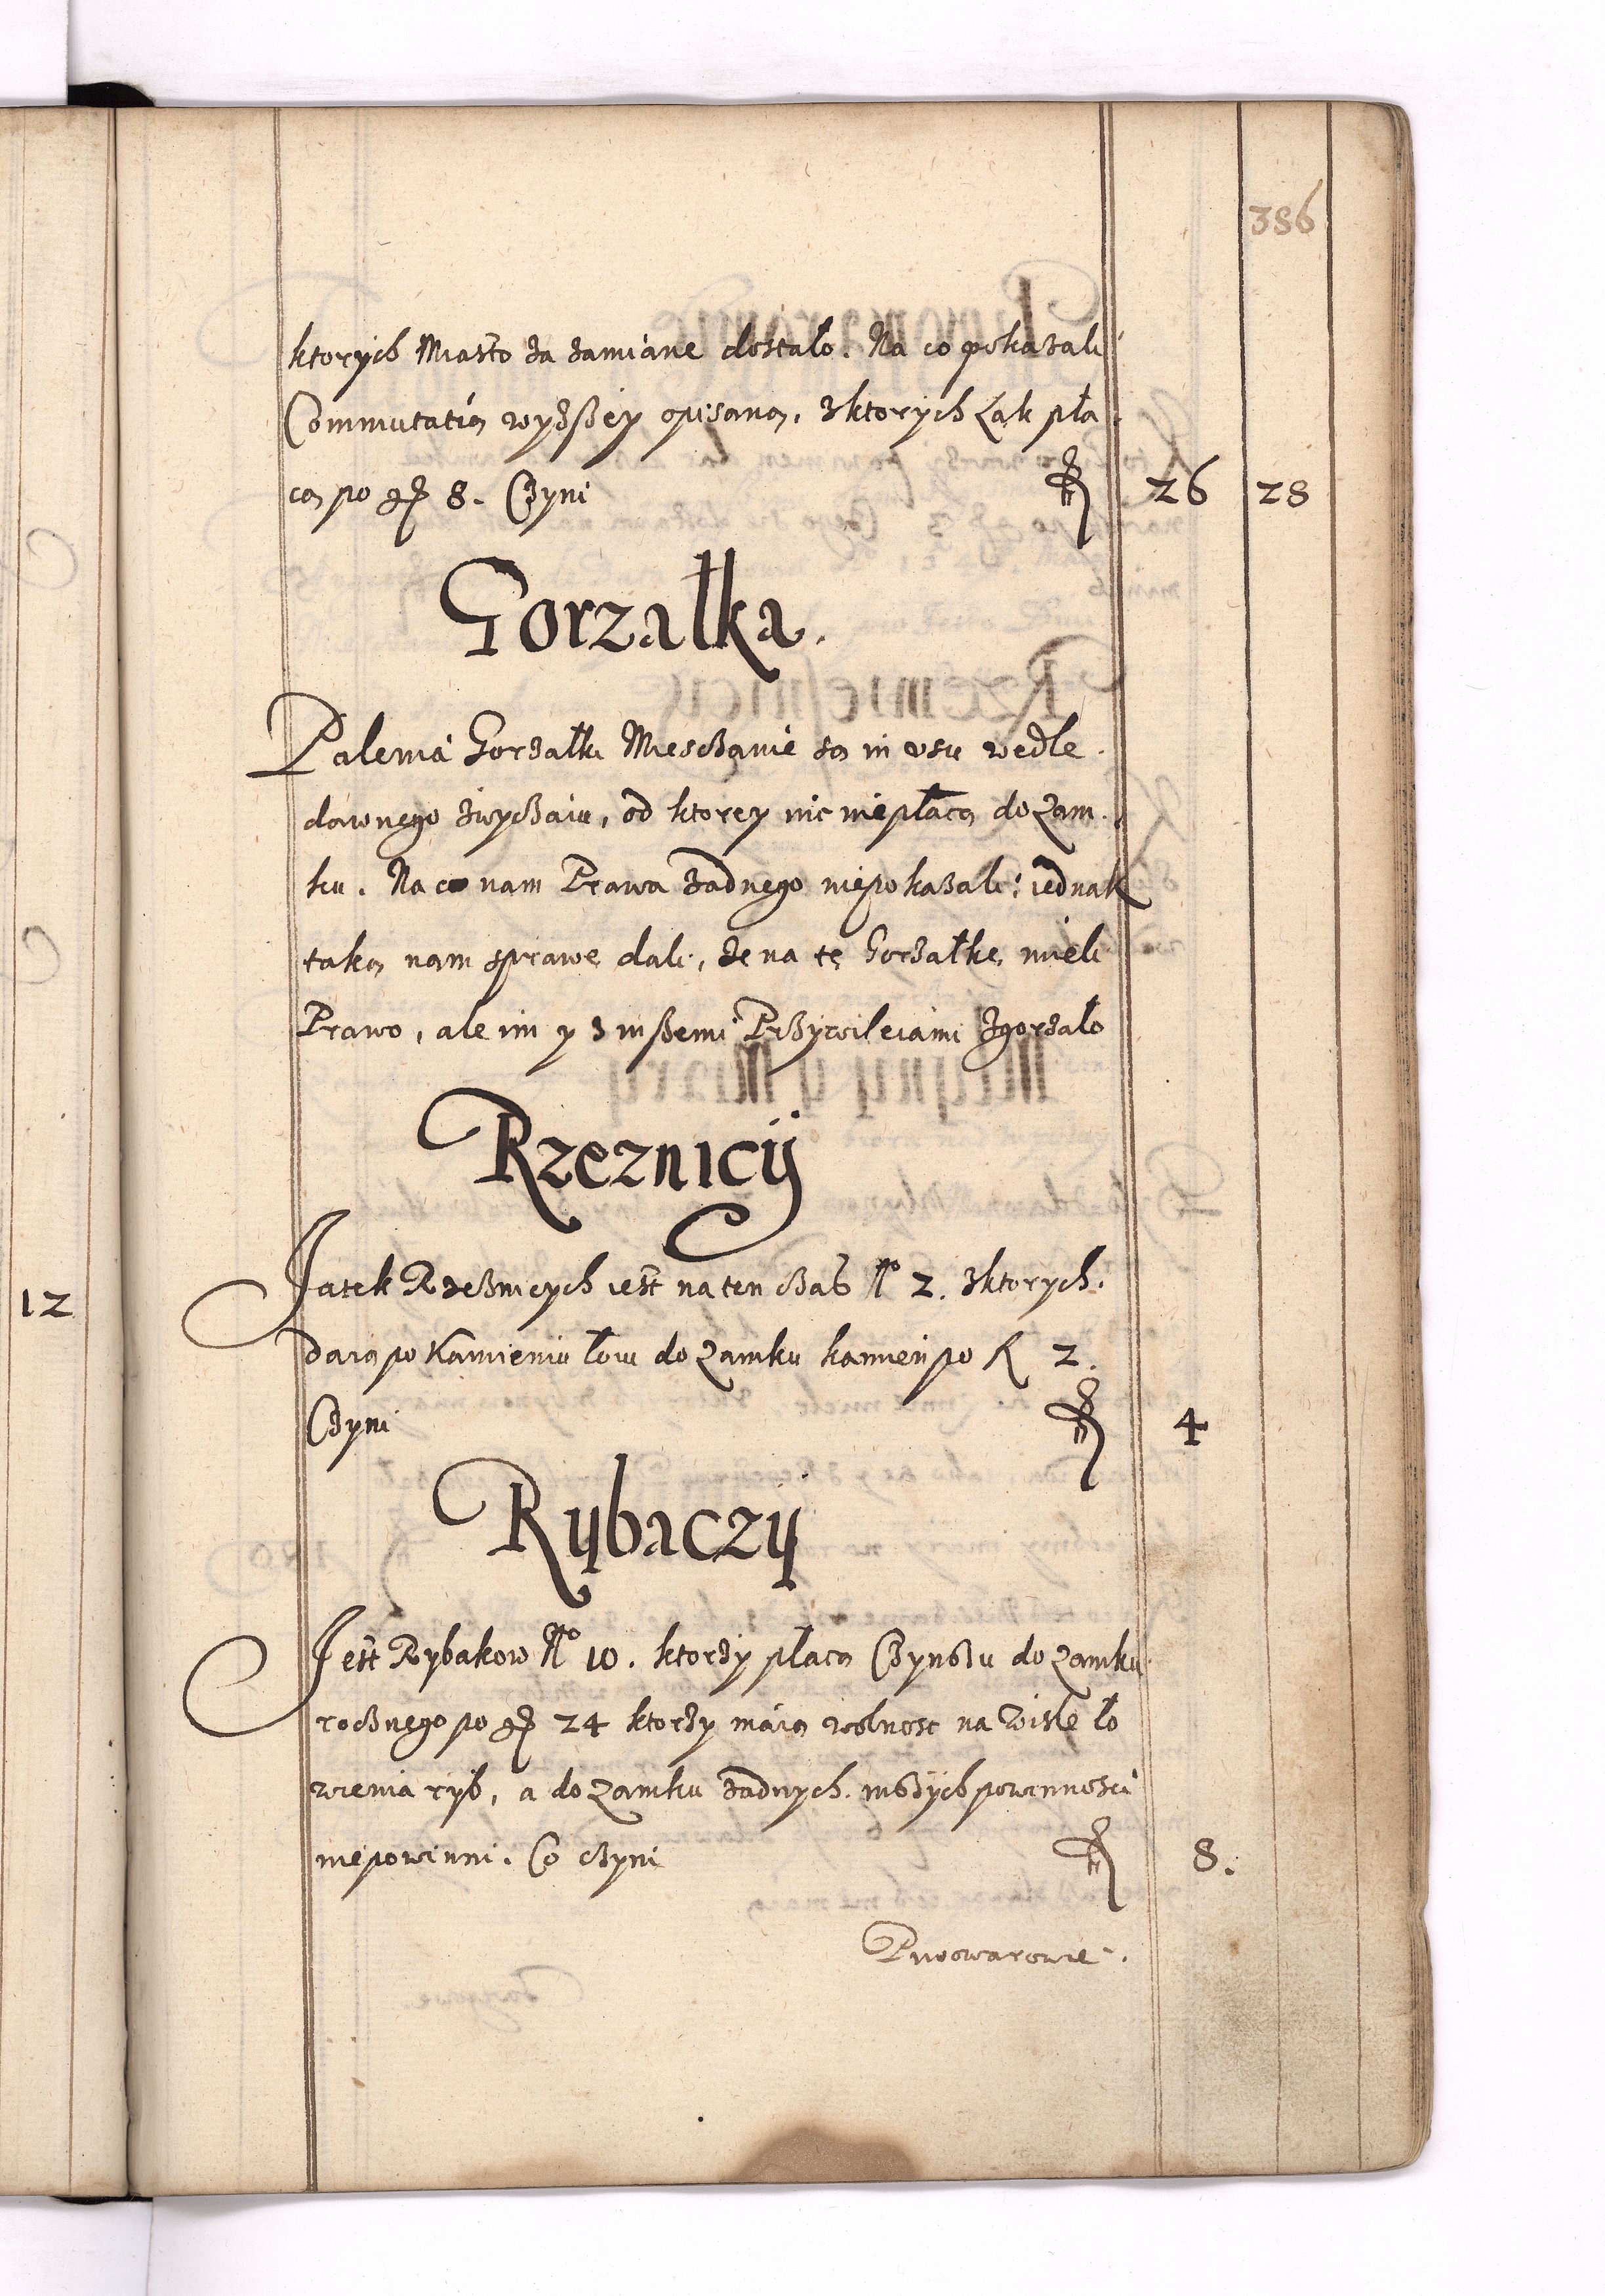 386
ktorych Miasto za zamianę dostało. Na co pokazali
Commutatią wyzßey opisaną, z ktorych Łąk pła
cą po g 8. Czyni fl 26 28
Gorzałka.
Palenia Gorzałki Miesczanie są in usu wedle
dawnego zwyczaiu, od ktorey nic niepłacą do Zam
ku. Na co nam Prawa żadnego niepokazali: iednak
taką nam sprawę dali, że na tę Gorzałkę mieli
Prawo, ale im y z inßemi Przywileiami zgorzało
Rzeznicÿ
Jatek Rzeznicych iest na ten czas No 2. z ktorych
daią po Kamieniu łoiu do Zamku kamień po fl 2.
Czyni fl 4
Rÿbaczÿ
Jest Rybakow No 10. ktorzy płacą Czynszu do Zamku
rocznego po g 24 ktorzy máią wolnosc na Wisle ło
wienia ryb, a do Zamku żadnych inszych powinnosci
niepowinni. Co czyni fl 8.
Piwowarowie.
12